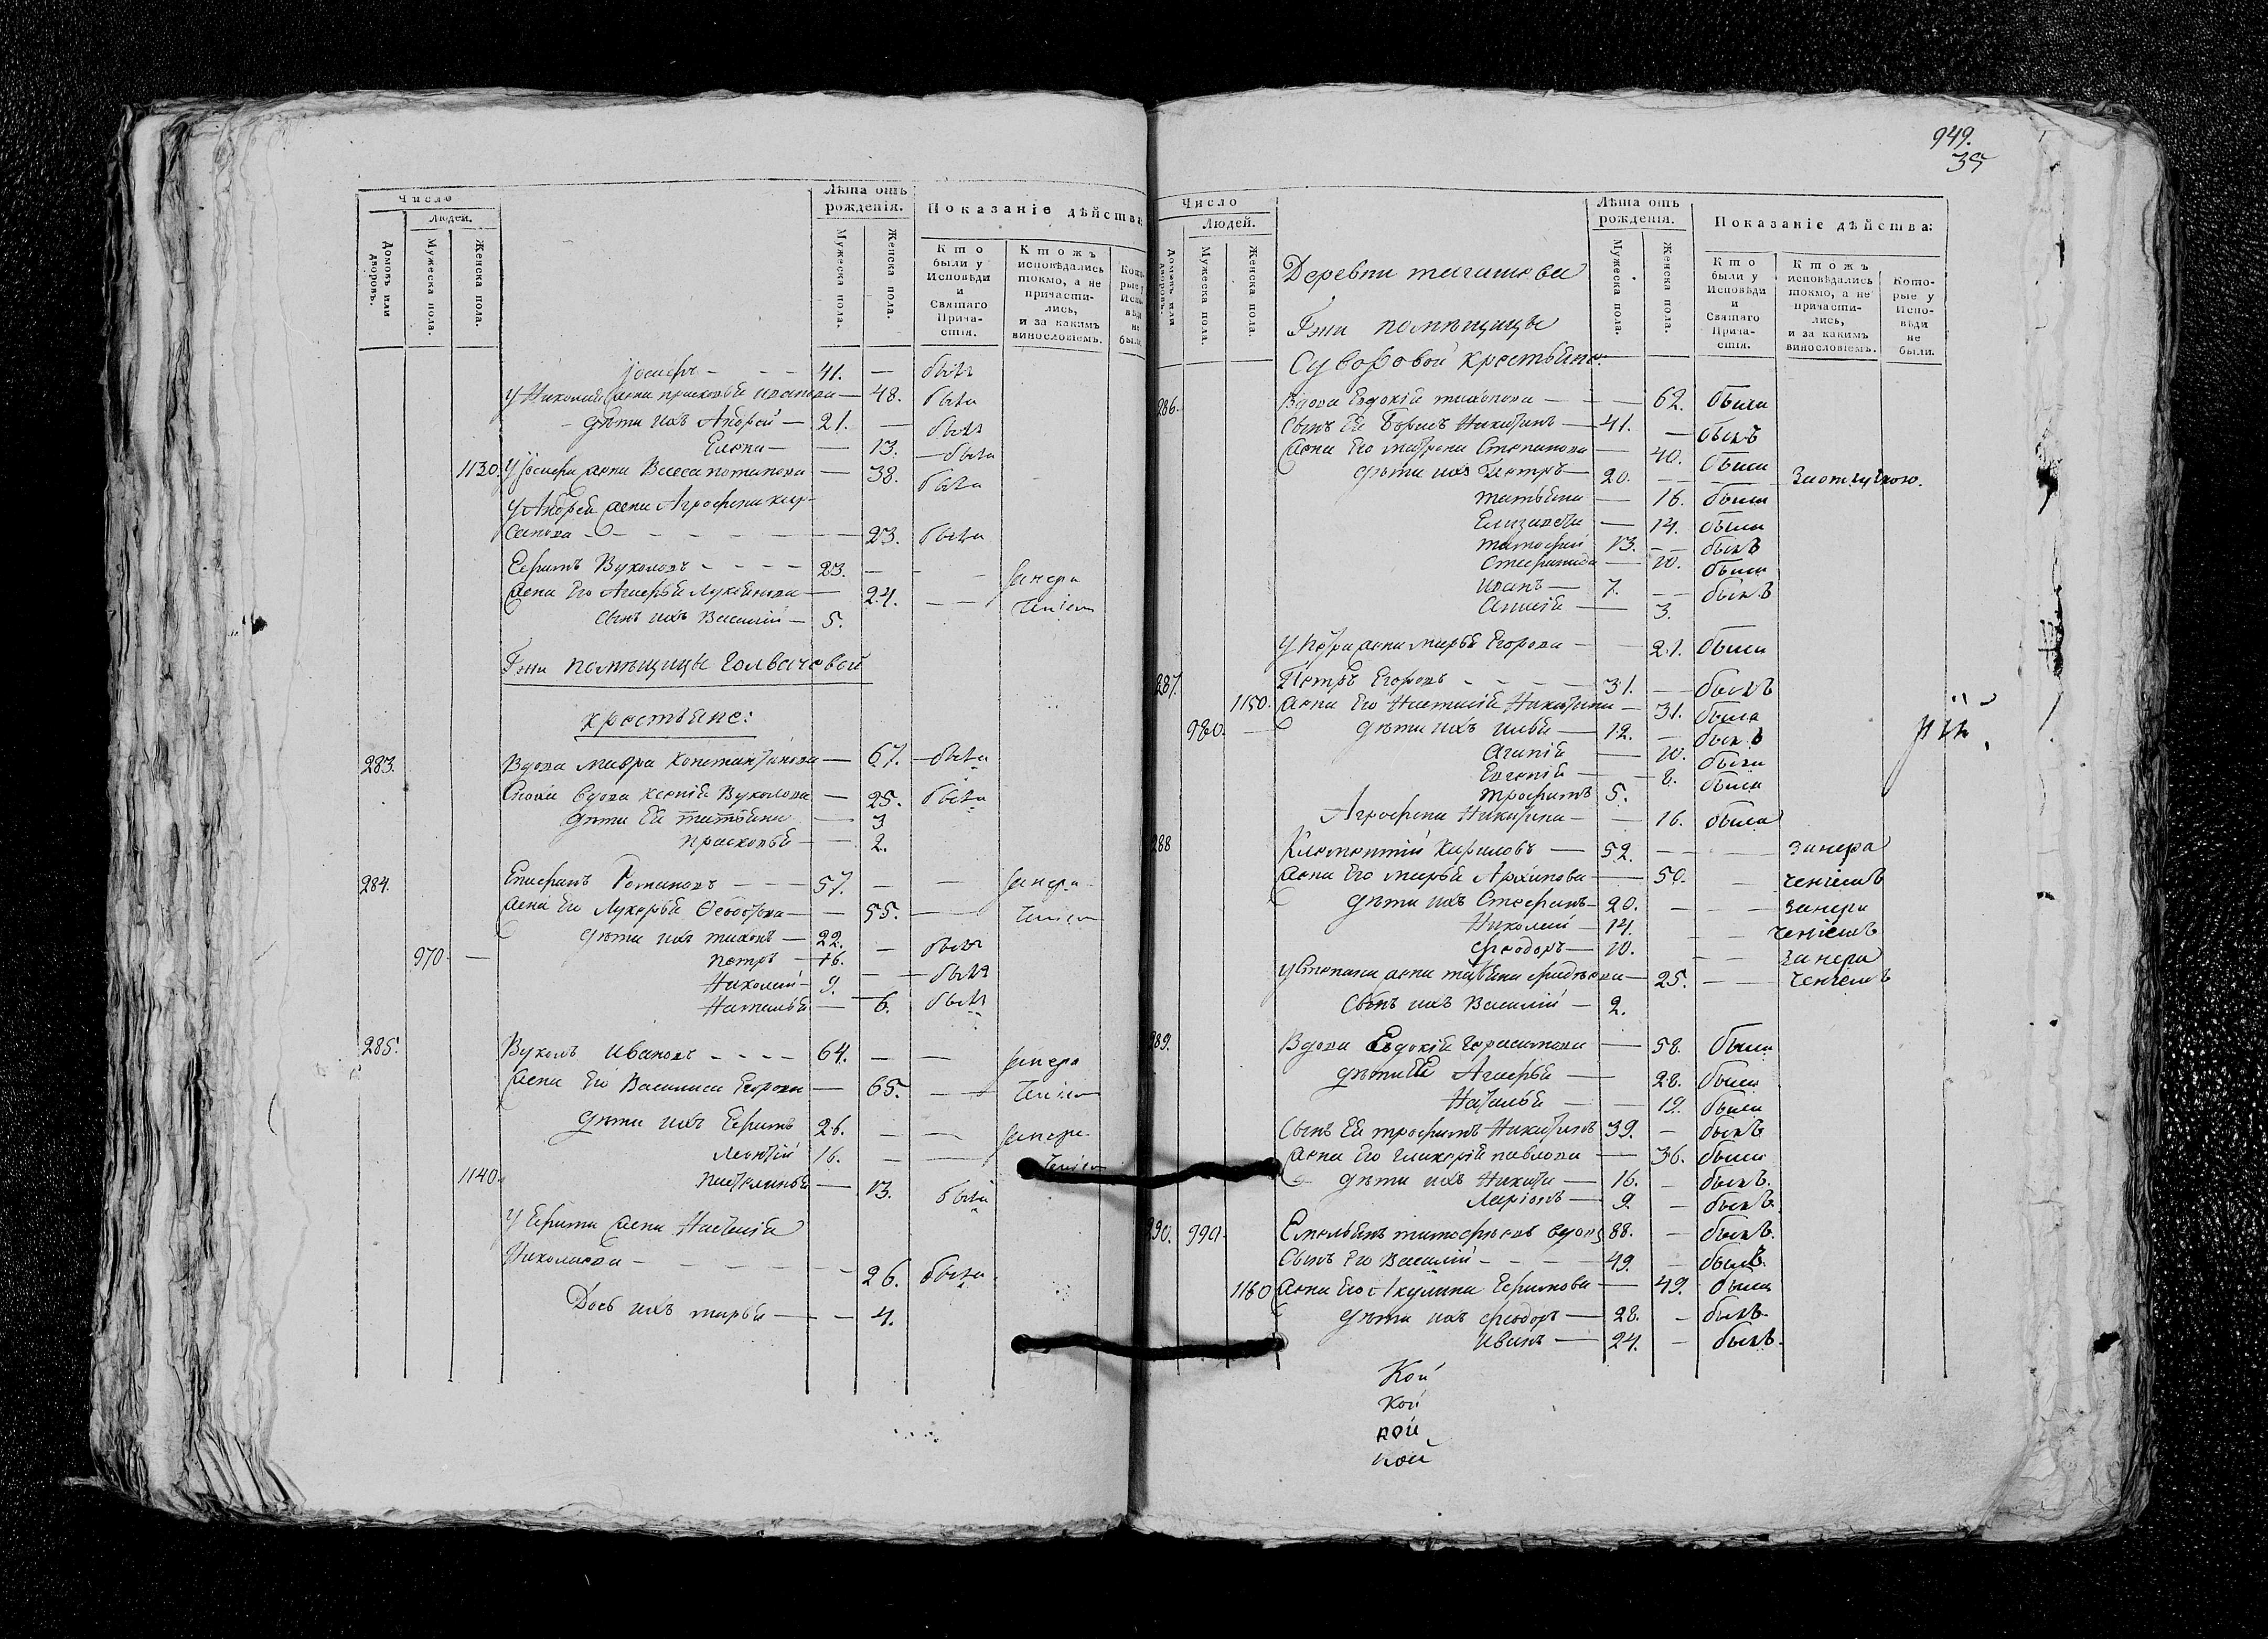 Число
Людей.
Домовъ или дворовъ.
Мужеска пола.
Женска пола.
Лѣта отъ рожденія.
Мужеска пола.
Женска пола.
Показаніе дѣйства:
Кто были у Исповѣди и Святаго Причастія.
Ктожъ исповѣдались токмо, а не причастились, и за какимъ винословіемъ.
Которые у Исповѣди не были.
Іосифъ 41. — былъ
У Николая жена Прасковья Иванова — 48. была
дѣти ихъ Андрей — 21. — былъ
Елена — 13. — была
1130. У Іосифа жена Васса Потапова — 38. была
У Андрея жена Агрофена
23. была
Ефимъ Вуколовъ 23. — — занера
Жена его Агафья Лукьянова — 24. — — ченіем
Сынъ ихъ Василій — 5.
Гжи помѣщицы Голвачовой
крестьяне:
283. Вдова Мавра Константинова — 67. — была
Сноха вдова Ксенія Вуколова — 25. была
дѣти ея Татьяна — 3
Прасковья — 2.
284. Епифанъ Романовъ — 57. — — занера
Жена его Лукерья Ѳедотова — 55. — ченіем
дѣти ихъ Тихонъ — 22. — былъ
970. — Петръ — 16. — былъ
Николай — 9. — былъ
Наталья — 6.
285. Вуколъ Ивановъ 64. — — занера
Жена его Василиса Егорова — 65. — — ченіем
дѣти ихъ Ефимъ 26. — — занера
Леонтій 16. — — ченіем
1140. Пелагья — 13. была
У Ефима жена Настасія
Николаева — 26. была
Дочь ихъ Марья — 4.
949.
35
Число
Людей.
Домовъ или дворовъ.
Мужеска пола.
Женска пола.
Лѣта отъ рожденія.
Мужеска пола.
Женска пола.
Показаніе дѣйства:
Кто были у Исповѣди и Святаго Причастія.
Ктожъ исповѣдались токмо, а не причастились, и за какимъ винословіемъ.
Которые у Исповѣди не были.
Деревни
Гжи помѣщицы
Суворовой крестьяне:
286. Вдова Евдокія — 62. была
Сынъ ея Борисъ Никитинъ — 41. — былъ
Жена его Матрона Степанова — 40. была
дѣти ихъ Петръ — 20. — — Заотлучкою.
Татьяна — 16. была
Елизавета — 14. была
Тимофей 13. — — былъ
Стефанида — 10. была
Иванъ — 7. — — былъ
3.
У Петра жена Марья Егорова — 21. была
287. Петръ Егоровъ 31. — былъ
1150. Жена его Настасія Никитина — 31. была
980. — дѣти ихъ Илья — 12. — былъ
Агапія — 10. была
Евгенія — 8. была
Трофимъ 5.
Агрофена Никитина — 16. была
288 Климентій Кириловъ — 52. — — занера
Жена его Марья Архипова — 50. — ченіемъ
дѣти ихъ Стефанъ — 20. — — занера
Николай — 14. — — ченіемъ
Феодоръ — 10. — — занера
У Степана жена Татьяна — 25. — — ченіемъ
Сынъ ихъ Василій — 2.
289. Вдова Евдокія Герасимова — 58. была
дѣти ея Агафья — 28. была
Наталья — 19. была
Сынъ ея Трофимъ Никитинъ 39. — былъ
Жена его Гликерія Павлова — 36. была
дѣти ихъ Никита — 16. — былъ.
Ларіонъ — 9. — былъ.
290. 990. Емельянъ Тимофѣевъ вдовъ 88. — былъ.
Сынъ его Василій 49. — былъ.
1160 Жена его Акулина Ефимова — 49. была
дѣти ихъ Феодоръ — 28. — былъ.
Иванъ — 24. — былъ.
Кой
кой
кой
кой